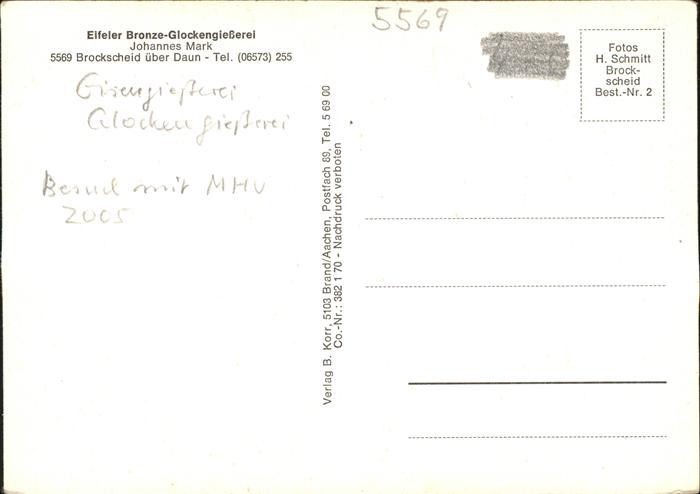 5569
Eifeler Bronze-Glockengießerei
Johannes Mark
5569 Brockscheid über Daun - Tel. (06573) 255
Eisengießerei
Glockengießerei
Besuch mit MHV
2005
Verlag B. Korr, 5103 Brand/Aachen, Postfach 89, Tel. 5 69 00
Co.-Nr.: 382 1 70 - Nachdruck verboten
Fotos
H. Schmitt
Brock-
scheid
Best.-Nr. 2